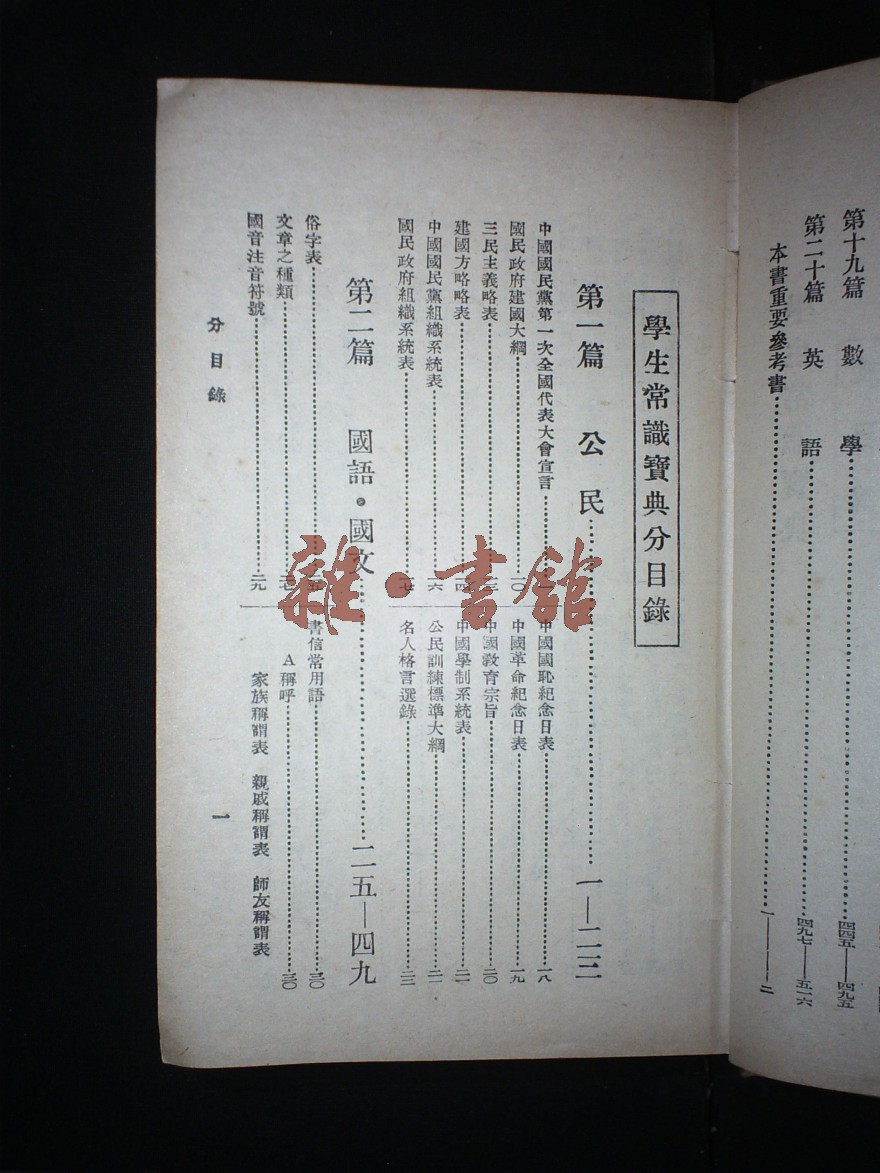 第十九篇 數學……四四五—四九五
第二十篇 英語……四九七—五一六
本書重要參考書……一—二
學生常識寶典分目錄
第一篇 公民……一—二三
中國國民黨第一次全國代表大會宣言……
國民政府建國大綱……一〇
三民主義略表……
建國方略略表……
中國國民黨組織系統表……一六
國民政府組織系統表……一七
中國國恥紀念日表……一八
中國革命紀念日表……一九
中國教育宗旨……二〇
中國學制系統表……二一
公民訓練標準大綱……二一
名人格言選錄……二三
第二篇 國語・國文……二五—四九
俗字表……二五
文章之種類……二七
國音注音符號……二九
書信常用語……三〇
A 稱呼……三〇
家族稱謂表 親戚稱謂表 師友稱謂表
分目錄 一
雜·書館